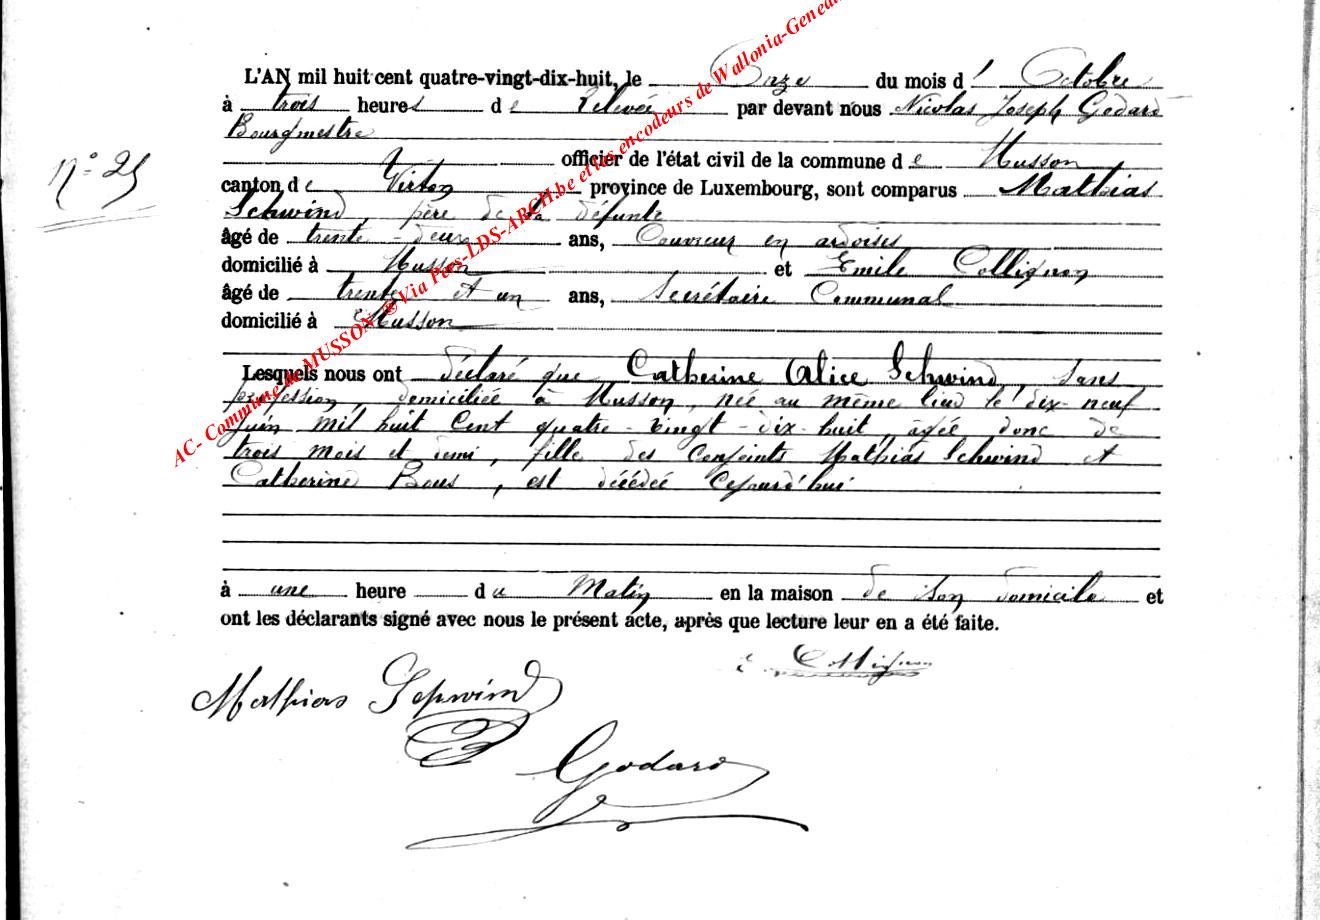 L'AN mil huit cent quatre-vingt-dix-huit, le Onze du mois d' Octobre
à trois heures de Relevée par devant nous Nicolas Joseph Godard
Bourgmestre
officier de l'état civil de la commune de Musson
N° 25
canton de Virton province de Luxembourg, sont comparus Mathias
Schwind, père de la défunte
âgé de trente-deux ans, Couvreur en ardoises
domicilié à Musson et Emile Collignon
âgé de trente et un ans, Secrétaire Communal
domicilié à Musson
Lesquels nous ont déclaré que Catherine Alice Schwind, sans
profession, domiciliée à Musson, née au même lieu le dix-neuf
Juin mil huit Cent quatre-vingt-dix-huit, agée donc de
trois mois et demi, fille des Conjoints Mathias Schwind et
Catherine Bous, est décédée Cejourd'hui
à une heure du Matin en la maison de son domicile et
ont les déclarants signé avec nous le présent acte, après que lecture leur en a été faite.
E. Collignon
Mathias Schwind
Godard
AC- Commune de MUSSON © Via Pers-LDS-ARCH.be et les encodeurs de Wallonia-Genea